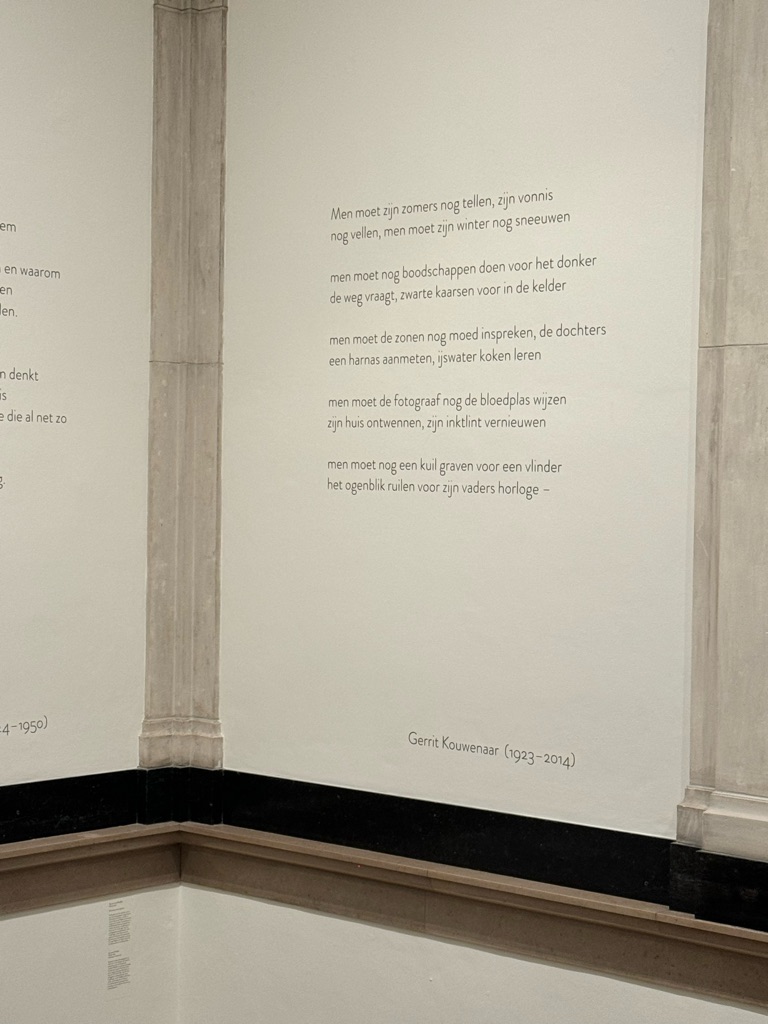 em
en waarom
en
den.
n denkt
is
e die al net zo
g.
4–1950)
Men moet zijn zomers nog tellen, zijn vonnis
nog vellen, men moet zijn winter nog sneeuwen
men moet nog boodschappen doen voor het donker
de weg vraagt, zwarte kaarsen voor in de kelder
men moet de zonen nog moed inspreken, de dochters
een harnas aanmeten, ijswater koken leren
men moet de fotograaf nog de bloedplas wijzen
zijn huis ontwennen, zijn inktlint vernieuwen
men moet nog een kuil graven voor een vlinder
het ogenblik ruilen voor zijn vaders horloge –
Gerrit Kouwenaar (1923–2014)